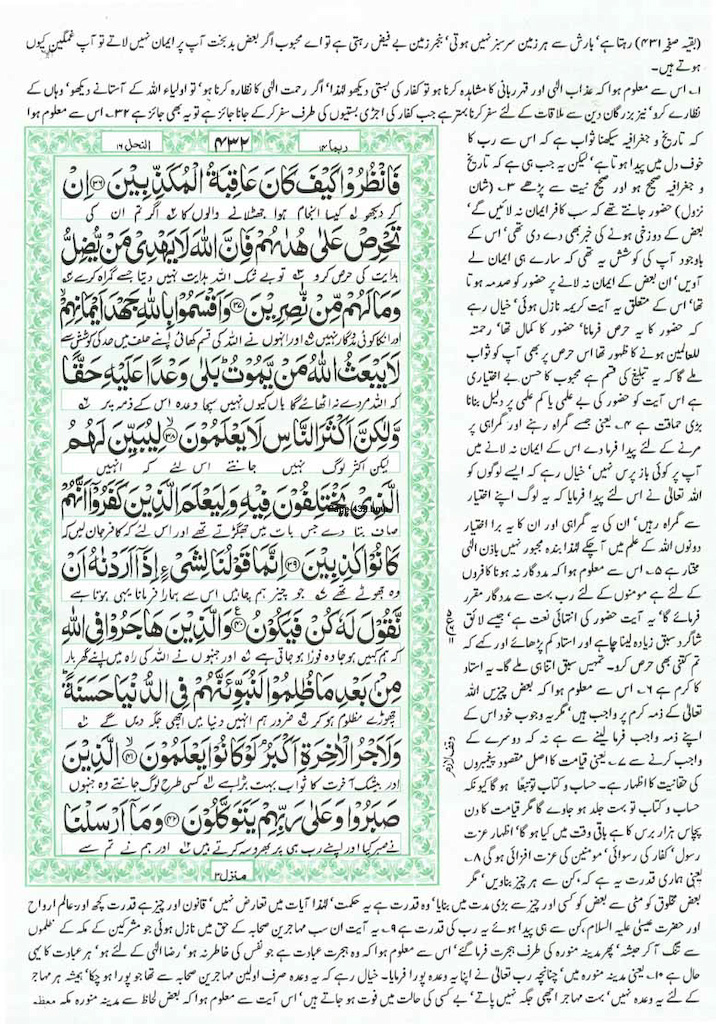 (بقیہ صفحہ ۴۳۱) رہتا ہے' بارش سے ہر زمین سرسبز نہیں ہوتی' بنجر زمین بے فیض رہتی ہے تو اے محبوب اگر بعض بدبخت آپ پر ایمان نہیں لاتے تو آپ غمگین کیوں
ہوتے ہیں۔
۱۔ اس سے معلوم ہوا کہ عذاب الٰہی اور قہر ربانی کا مشاہدہ کرنا ہو تو کفار کی بستی دیکھو لہٰذا' اگر رحمت الٰہی کا نظارہ کرنا ہو' تو اولیاء اللہ کے آستانے دیکھو' وہاں کے
نظارے کرو' نیز بزرگان دین سے ملاقات کے لئے سفر کرنا بہتر ہے جب کفار کی اجڑی بستیوں کی طرف سفر کر کے جانا جائز ہے تو یہ بھی جائز ہے ۲۔ اس سے معلوم ہوا
کہ تاریخ و جغرافیہ سیکھنا ثواب ہے کہ اس سے رب کا
خوف دل میں پیدا ہوتا ہے' لیکن یہ جب ہی ہے کہ تاریخ
و جغرافیہ صحیح ہو اور صحیح نیت سے پڑھے ۳۔ (شان
نزول) حضور جانتے تھے کہ سب کافر ایمان نہ لائیں گے'
بعض کے دوزخی ہونے کی خبر بھی دے دی تھی' اس کے
باوجود آپ کی کوشش یہ تھی کہ سارے ہی ایمان لے
آویں' ان بعض کے ایمان نہ لانے پر حضور کو صدمہ ہوتا
تھا' اس کے متعلق یہ آیت کریمہ نازل ہوئی' خیال رہے
کہ حضور کا یہ حرص فرمانا' حضور کا کمال تھا' رحمتہ
للعالمین ہونے کا ظہور تھا اس حرص پر بھی آپ کو ثواب
ملے گا کہ یہ تبلیغ کی قسم ہے محبوب کا حسن بے اختیاری
ہے اس آیت کو حضور کی بے علمی یا کم علمی پر دلیل بنانا
بڑی حماقت ہے ۴۔ یعنی جسے گمراہ رہنے اور گمراہی پر
مرنے کے لئے پیدا فرما دے اس کے ایمان نہ لانے میں
آپ پر کوئی باز پرس نہیں' خیال رہے کہ ایسے لوگوں کو
اللہ تعالیٰ نے اس لئے پیدا فرمایا کہ یہ لوگ اپنے اختیار
سے گمراہ رہیں' ان کی یہ گمراہی اور ان کا یہ برا اختیار
دونوں اللہ کے علم میں آ چکے لہٰذا بندہ مجبور نہیں باذن الٰہی
مختار ہے ۵۔ اس سے معلوم ہوا کہ مددگار نہ ہونا کافروں
کے لئے ہے مومنوں کے لئے رب بہت سے مددگار مقرر
فرمائے گا' یہ آیت حضور کی انتہائی نعت ہے' جیسے لائق
شاگرد سبق زیادہ لینا چاہے اور استاد کم پڑھائے اور کہے کہ
تم کتنی بھی حرص کرو۔ تمہیں سبق اتنا ہی ملے گا۔ یہ استاد
کا کرم ہے ۶۔ اس سے معلوم ہوا کہ بعض چیزیں اللہ
تعالیٰ کے ذمہ کرم پر واجب ہیں' مگر یہ وجوب خود اس کے
اپنے ذمہ واجب فرما لینے سے ہے نہ کہ دوسرے کے
واجب کرنے سے ۷۔ یعنی قیامت کا اصل مقصود پیغمبروں
کی حقانیت کا اظہار ہے۔ حساب و کتاب تو تبعاً ہو گا کیونکہ
حساب و کتاب تو بہت جلد ہو جاوے گا مگر قیامت کا دن
پچاس ہزار برس کا ہے باقی وقت میں کیا ہو گا' اظہار عزت
رسول' کفار کی رسوائی' مومنین کی عزت افزائی ہو گی ۸۔
یعنی ہماری قدرت یہ ہے کہ' کن سے ہر چیز بناویں' مگر
ربما ۱۴
۴۳۲
النحل ۱۶
فَانْظُرُوْا كَيْفَ كَانَ عَاقِبَةُ الْمُكَذِّبِيْنَ ﴿۳۶﴾ اِنْ
کر دیکھو لہ کیسا انجام ہوا جھٹلانے والوں کا اگر تم ان کی
تَحْرِصْ عَلٰى هُدٰىهُمْ فَاِنَّ اللّٰهَ لَا يَهْدِيْ مَنْ يُّضِلُّ
ہدایت کی حرص کرو تو بے شک اللہ ہدایت نہیں دیتا جسے گمراہ کرے
وَمَا لَهُمْ مِّنْ نّٰصِرِيْنَ ﴿۳۷﴾ وَاَقْسَمُوْا بِاللّٰهِ جَهْدَ اَيْمَانِهِمْ
اور انکا کوئی مددگار نہیں اور انہوں نے اللہ کی قسم کھائی اپنے حلف میں حد کی کوشش سے
لَا يَبْعَثُ اللّٰهُ مَنْ يَّمُوْتُ بَلٰى وَعْدًا عَلَيْهِ حَقًّا
کہ اللہ مردے نہ اٹھائے گا ہاں کیوں نہیں سچا وعدہ اس کے ذمہ پر
وَّلٰكِنَّ اَكْثَرَ النَّاسِ لَا يَعْلَمُوْنَ ﴿۳۸﴾ لِيُبَيِّنَ لَهُمُ
لیکن اکثر لوگ نہیں جانتے اس لئے کہ انہیں
الَّذِيْ يَخْتَلِفُوْنَ فِيْهِ وَلِيَعْلَمَ الَّذِيْنَ كَفَرُوْٓا اَنَّهُمْ
صاف بتا دے جس بات میں جھگڑتے تھے اور اس لئے کہ کافر جان لیں کہ
كَانُوْا كٰذِبِيْنَ ﴿۳۹﴾ اِنَّمَا قَوْلُنَا لِشَيْءٍ اِذَآ اَرَدْنٰهُ اَنْ
وہ جھوٹے تھے جو چیز ہم چاہیں اس سے ہمارا فرمانا یہی ہوتا ہے
نَّقُوْلَ لَهٗ كُنْ فَيَكُوْنُ ﴿۴۰﴾ وَالَّذِيْنَ هَاجَرُوْا فِي اللّٰهِ
کہ ہم کہیں ہو جا وہ فورا ہو جاتی ہے اور جنہوں نے اللہ کی راہ میں اپنے گھر بار
مِنْ بَعْدِ مَا ظُلِمُوْا لَنُبَوِّئَنَّهُمْ فِي الدُّنْيَا حَسَنَةً
چھوڑے مظلوم ہو کر ضرور ہم انہیں دنیا میں اچھی جگہ دیں گے
وَلَاَجْرُ الْاٰخِرَةِ اَكْبَرُ لَوْ كَانُوْا يَعْلَمُوْنَ ﴿۴۱﴾ الَّذِيْنَ
اور بیشک آخرت کا ثواب بہت بڑا ہے کسی طرح لوگ جانتے وہ جنہوں
صَبَرُوْا وَعَلٰى رَبِّهِمْ يَتَوَكَّلُوْنَ ﴿۴۲﴾ وَمَآ اَرْسَلْنَا
نے صبر کیا اور اپنے رب ہی پر بھروسہ کرتے ہیں اور ہم نے تم سے
منزل ۳
وقف لازم
بعض مخلوق کو مٹی سے بعض کو کسی اور چیز سے بڑی مدت میں بنایا' وہ قدرت ہے یہ حکمت' لہٰذا آیات میں تعارض نہیں' قانون اور چیز ہے قدرت کچھ اور۔ عالم ارواح
اور حضرت عیسیٰ علیہ السلام کن سے ہی پیدا ہوئے یہ رب کی قدرت ہے ۹۔ یہ آیت ان سب مہاجرین صحابہ کے حق میں نازل ہوئی جو مشرکین کے مکہ کے ظلموں
سے تنگ آ کر حبشہ' پھر مدینہ منورہ کی طرف ہجرت فرما گئے' اس سے معلوم ہوا کہ وہ ہجرت عبادت ہے جو نفس کی خاطر نہ ہو' رضا الٰہی کے لئے ہو' ہر عبادت کا یہی
حال ہے ۱۰۔ یعنی مدینہ منورہ میں' چنانچہ رب تعالیٰ نے اپنا یہ وعدہ پورا فرمایا۔ خیال رہے کہ یہ وعدہ صرف اولین مہاجرین صحابہ سے تھا جو پورا ہو چکا' ہمیشہ ہر مہاجر
کے لئے یہ وعدہ نہیں' بہت مہاجر اچھی جگہ نہیں پاتے' بے کسی کی حالت میں فوت ہو جاتے ہیں' اس آیت سے معلوم ہوا کہ بعض لحاظ سے مدینہ منورہ مکہ معظمہ